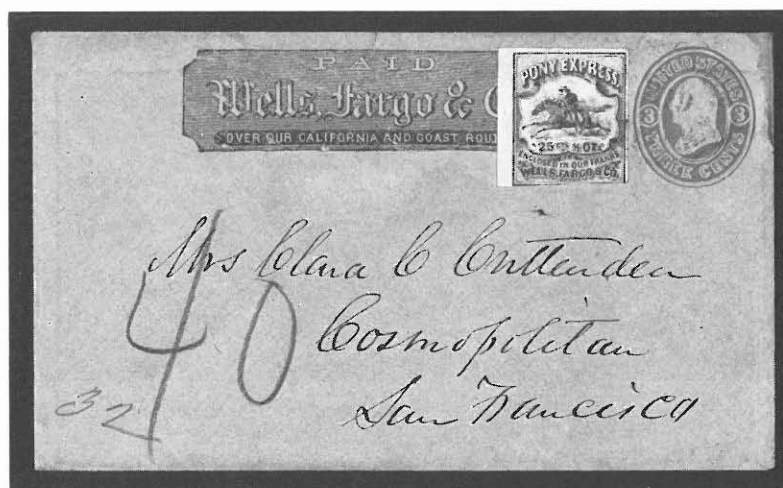 PAID
Wells, Fargo & C
OVER OUR CALIFORNIA AND COAST ROU
PONY EXPRESS
25 CTS ½ OZ.
ENCLOSED IN OUR FRANKS
WELLS, FARGO & CO.
UNITED STATES
3 3
THREE CENTS
Mrs Clara C Crittenden
Cosmopolitan
San Francisco
40
32